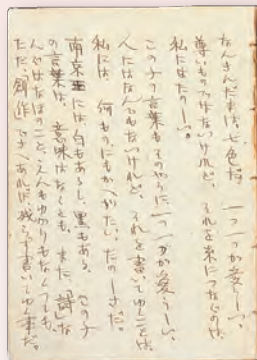 なんきんだまは、七色だ、一つ一つが愛らしい、
尊いものではないけれど、それを糸につなぐのは、
私にはたのしい。
この子の言葉もそのやうに、一つ一つが愛らしい、
人にはなんでもないけれど、それを書いてゆくことは、
私には、何ものにもかへがたい、たのしさだ。
南京玉には、白もあるし、黒もある、この子
の言葉は、意味はなくとも、また、詩な
んぞはなほのこと、えんもゆかりもなくても、
ただ、創作でさへあれば残らず書いてゆく事だ。